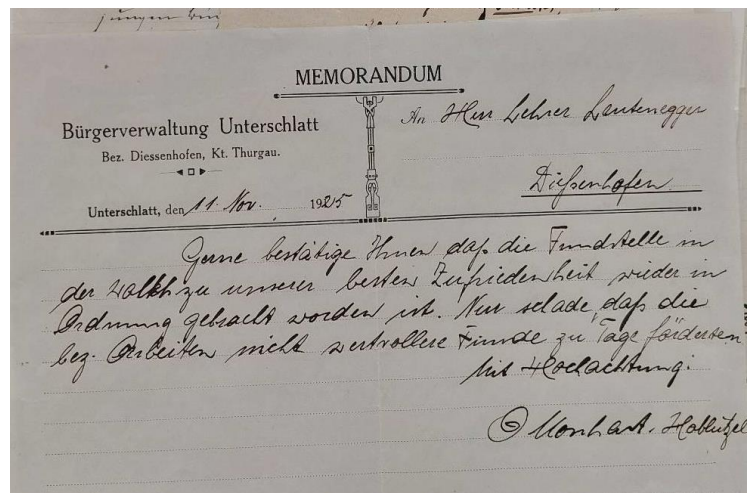 jungen
MEMORANDUM
Bürgerverwaltung Unterschlatt
Bez. Diessenhofen, Kt. Thurgau.
Unterschlatt, den 11. Nov. 1925
An Herr Lehrer Leutenegger
Dießenhofen
Gerne bestätige Ihnen daß die Fundstelle in
der zu unserer besten Zufriedenheit wieder in
Ordnung gebracht worden ist. Nur schade, daß die
bez. Arbeiten nicht wertvollere Funde zu Tage förderten
Mit Hochachtung:
Monhart. Hablützel